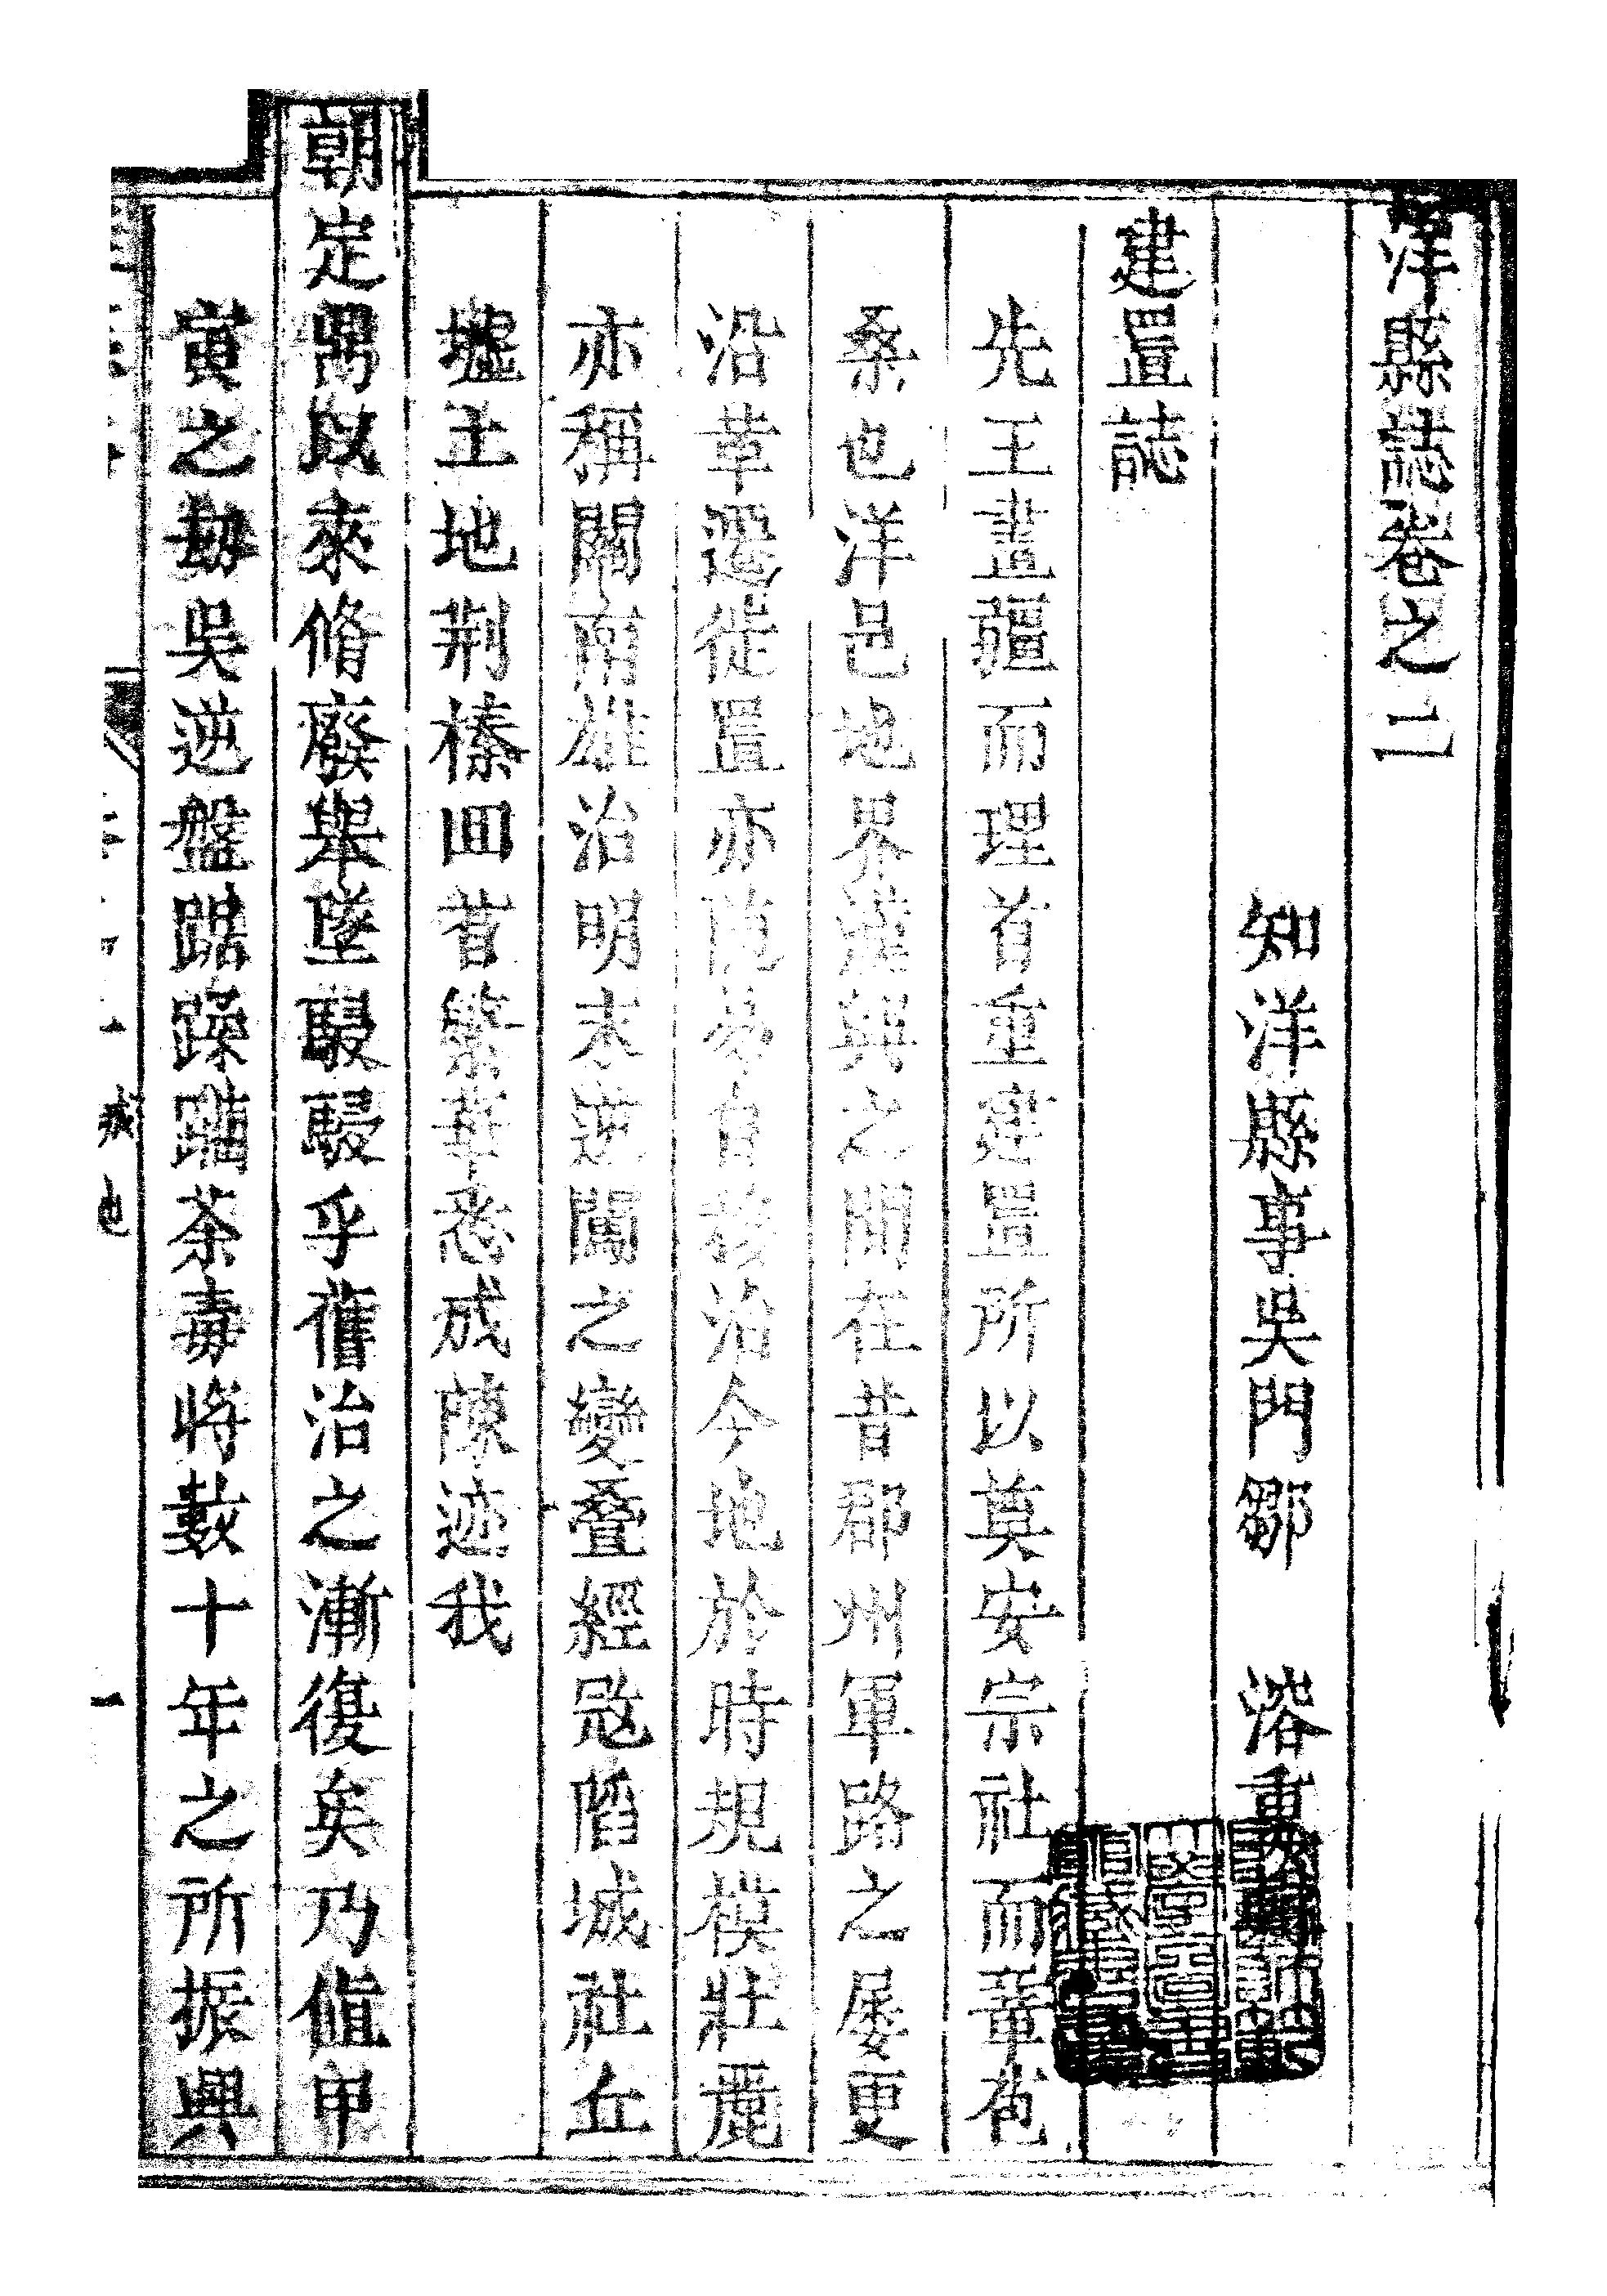 洋縣誌卷之二
知洋縣事吳門鄒 溶重
建置誌
先王畫疆而理首重建置所以奠安宗社而鞏苞
桑也洋邑地界漢興之間在昔郡州軍路之屡更
沿革遷徙置亦隨之自移治今地於時規模壯麗
亦稱關南雄治明末逆闖之變叠經寇陷城社丘
墟土地荆榛囬首繁華悉成陳迹我
朝定鼎以來脩廢舉墜駸駸乎舊治之漸復矣乃值甲
寅之刼吳逆盤踞蹂躪荼毒將數十年之所振興